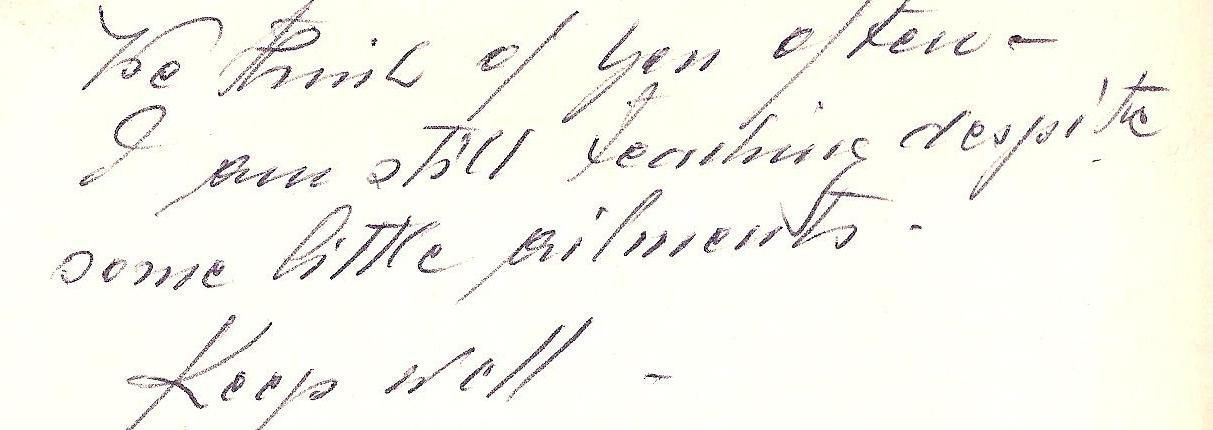 We think of you often -
I am still teaching despite
some little ailments.
Keep well -